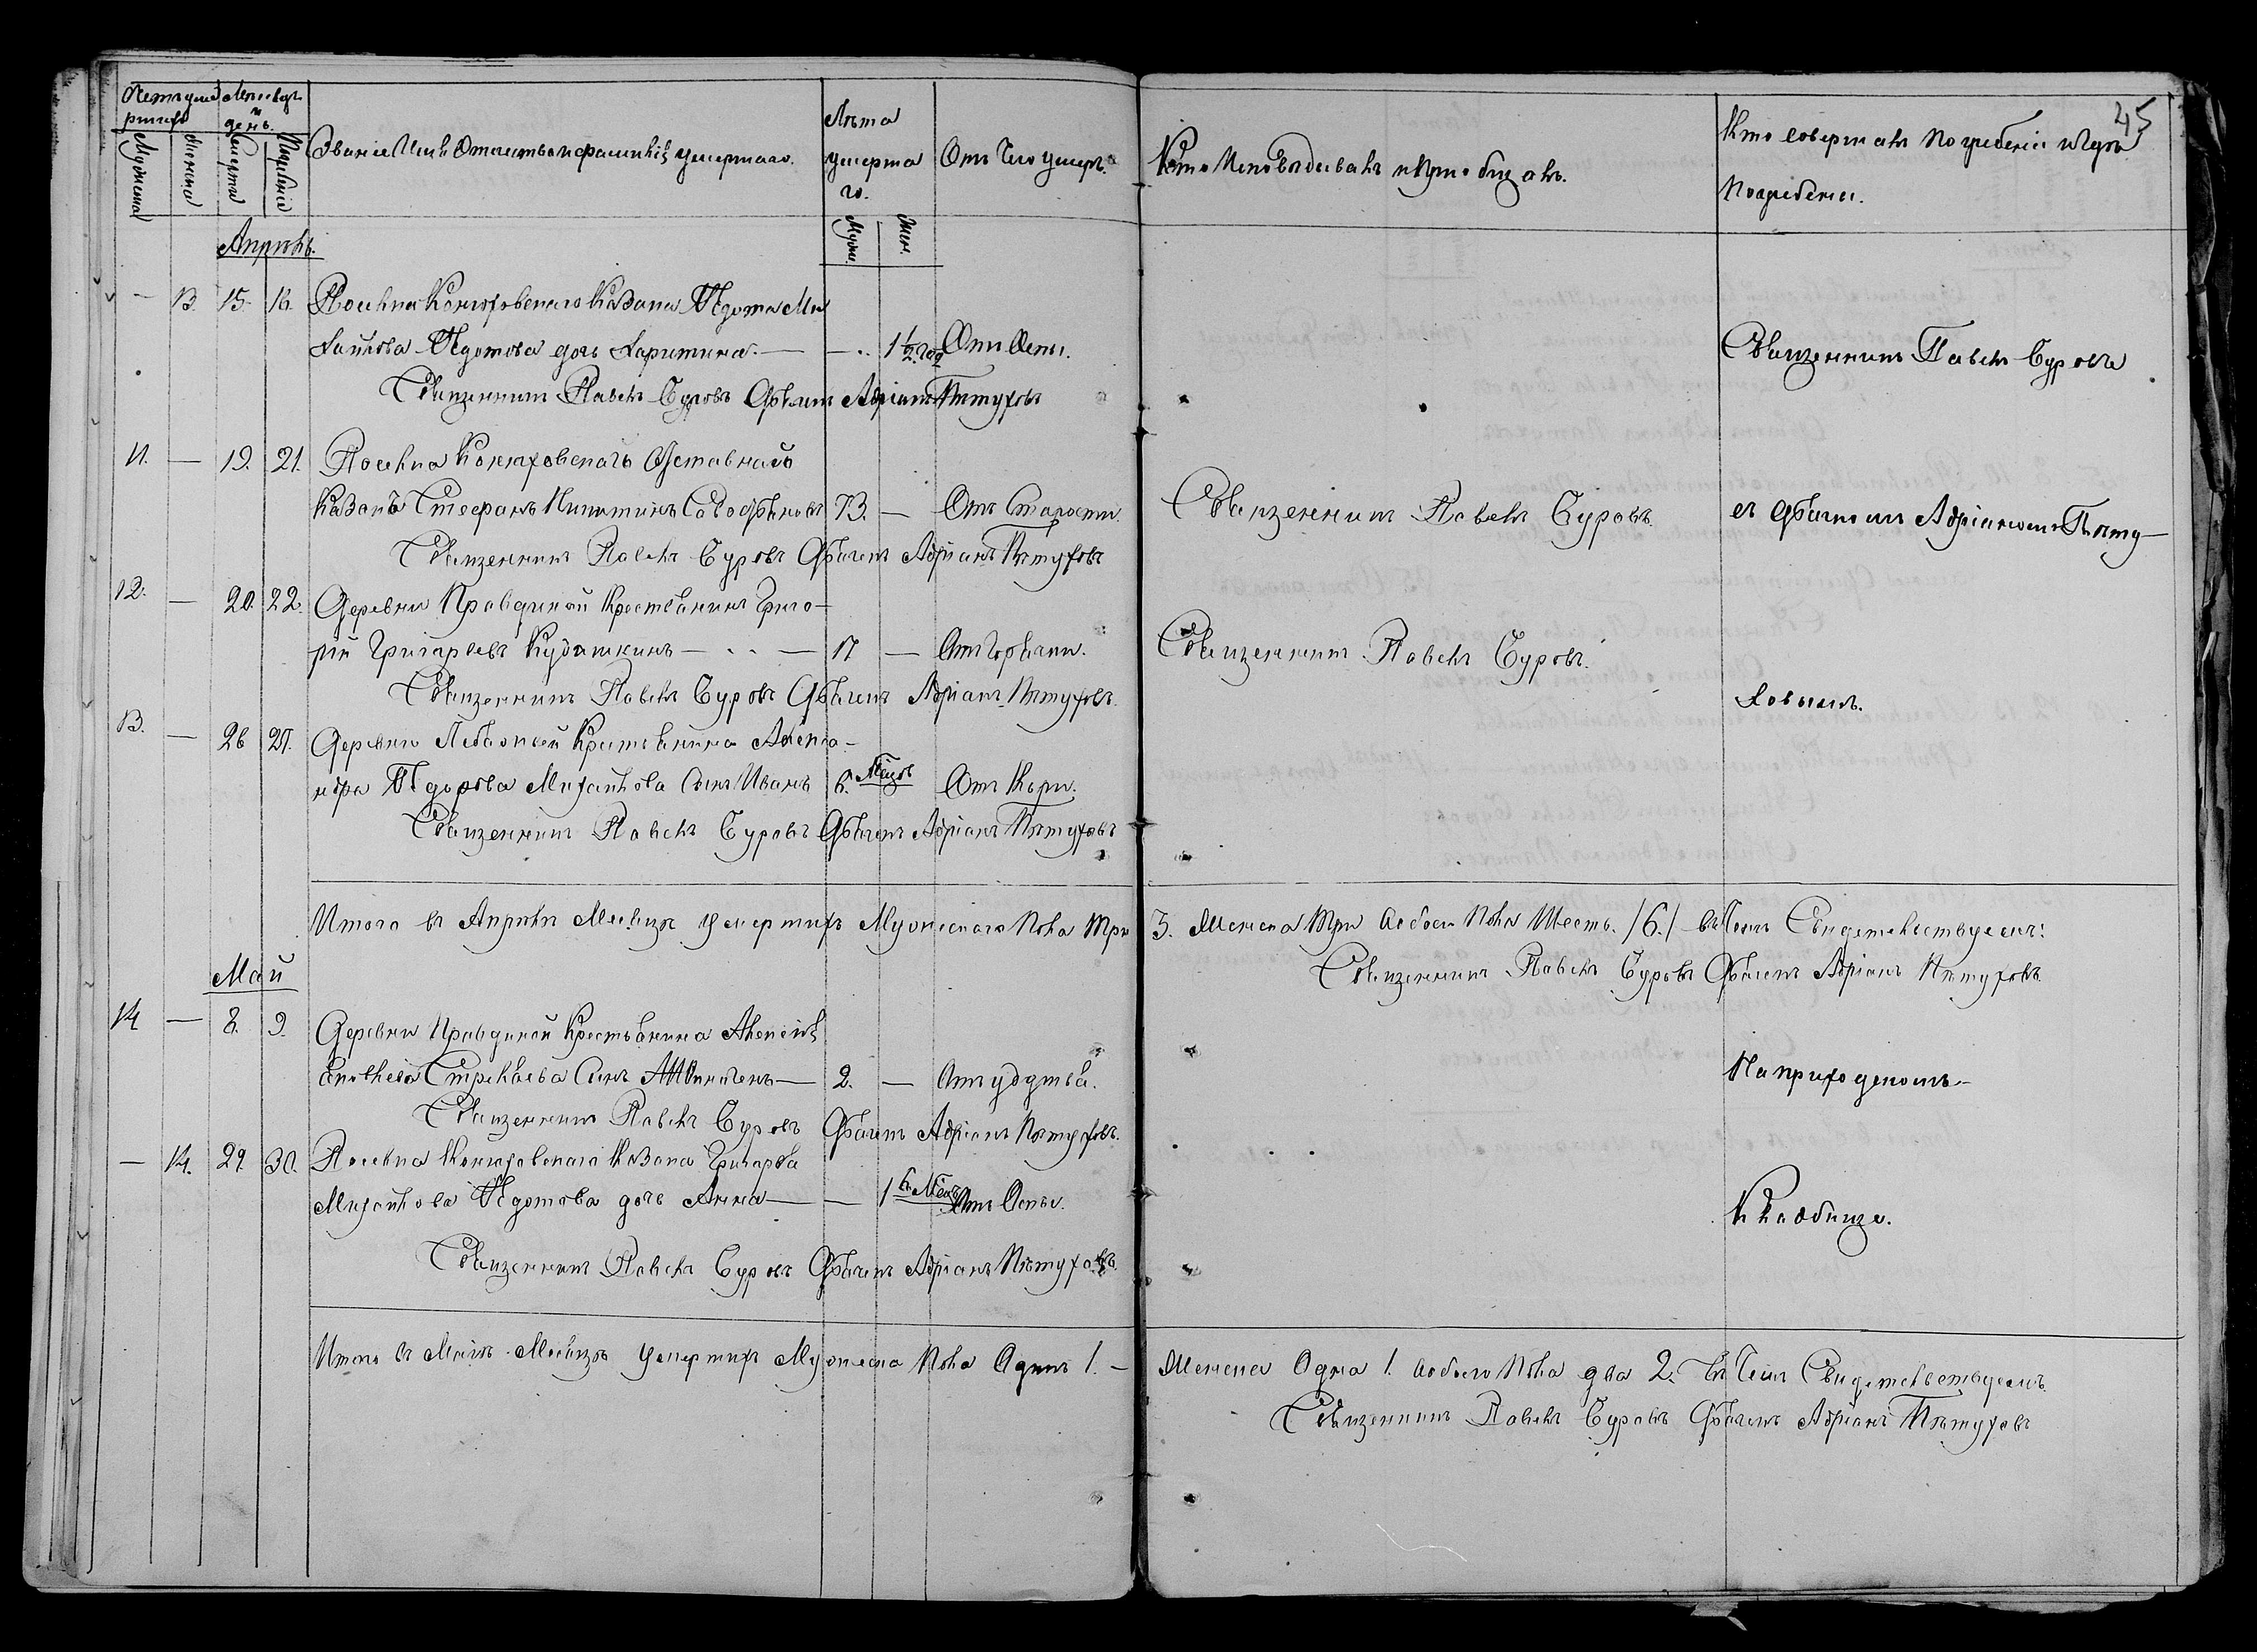 45
Счетъ умершихъ
Месяцъ и день.
Званіе Имя Отчество и фамилія умершаго.
Лѣта умершаго.
Отъ Чего умеръ.
Кто Исповѣдывалъ и Пріобщалъ.
Кто Совершалъ Погребеніе и Гдѣ Погребены.
Мужеска
Женска
Смерти
Погребенія
Муж.
Жен.
Апрѣль.
— 13. 15. 16. Посёлка Конюховскаго Козака Федота Ми
хайлова Федотова дочь Харитина. — 1 1/2 год Отъ Оспы.
Священникъ Павелъ Суровъ
Священникъ Павелъ Суровъ Дьячекъ Адріанъ Пѣтуховъ
11. — 19. 21. Посёлка Конюховскаго Отставной
Козакъ Стефанъ Никитинъ 73. — Отъ Старости.
Священникъ Павелъ Суровъ.
съ Дьячкомъ Адріаномъ Пѣту—
Священникъ Павелъ Суровъ Дьячекъ Адріанъ Пѣтуховъ
12. — 20. 22. Деревни Правдиной Крестьянинъ Григо—
рій Григорьевъ Кудашкинъ — 17 — Отъ Горячки.
Священникъ Павелъ Суровъ.
Священникъ Павелъ Суровъ Дьячекъ Адріанъ Пѣтуховъ.
ховымъ.
13. — 26 27. Деревни Крестьянина Алекса—
ндра Федорова Михайлова Сынъ Иванъ 6. Мѣсяц Отъ Кори.
Священникъ Павелъ Суровъ Дьячекъ Адріанъ Пѣтуховъ
Итого въ Апрѣлѣ Месяцѣ умершихъ Мужескаго Пола Три 3. Женска Три Обоего Пола Шесть. /6./ въ Чемъ Свидетельствуемъ:
Священникъ Павелъ Суровъ Дьячекъ Адріанъ Пѣтуховъ.
Май
14 — 8. 9. Деревни Правдиной Крестьянина Алексѣя
Стрелкова Сынъ — 2. — Отъ удушья.
На приходскомъ—
Священникъ Павелъ Суровъ Дьячекъ Адріанъ Пѣтуховъ.
— 14. 29. 30. Посёлка Конюховскаго Козака Григорья
Михайлова Федотова дочь Анна — — 1 6. Мѣсяц Отъ Оспы.
Кладбище.
Священникъ Павелъ Суровъ Дьячекъ Адріанъ Пѣтуховъ.
Итого въ Маіѣ Месяцѣ умершихъ Мужеска Пола Одинъ 1. — Женска Одна 1. Обоего Пола два 2. въ Чемъ Свидетельствуемъ.
Священникъ Павелъ Суровъ Дьячекъ Адріанъ Пѣтуховъ